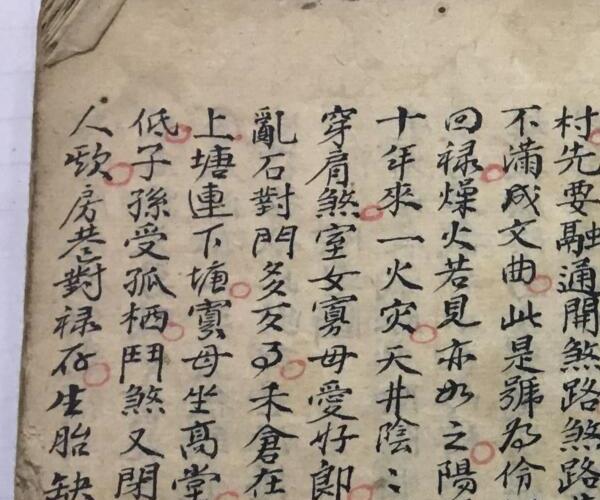 村先要融通開煞路煞路
不滿成文曲此是號為份
回禄燥火若見亦如之陽
十年來一火灾天井陰
穿肩煞室女寡母愛好郎
亂石對門多灾禾倉在
上塘連下塘寡母坐高堂
低子孫受孤栖鬥煞又閉
人歇房巷對禄存生胎缺